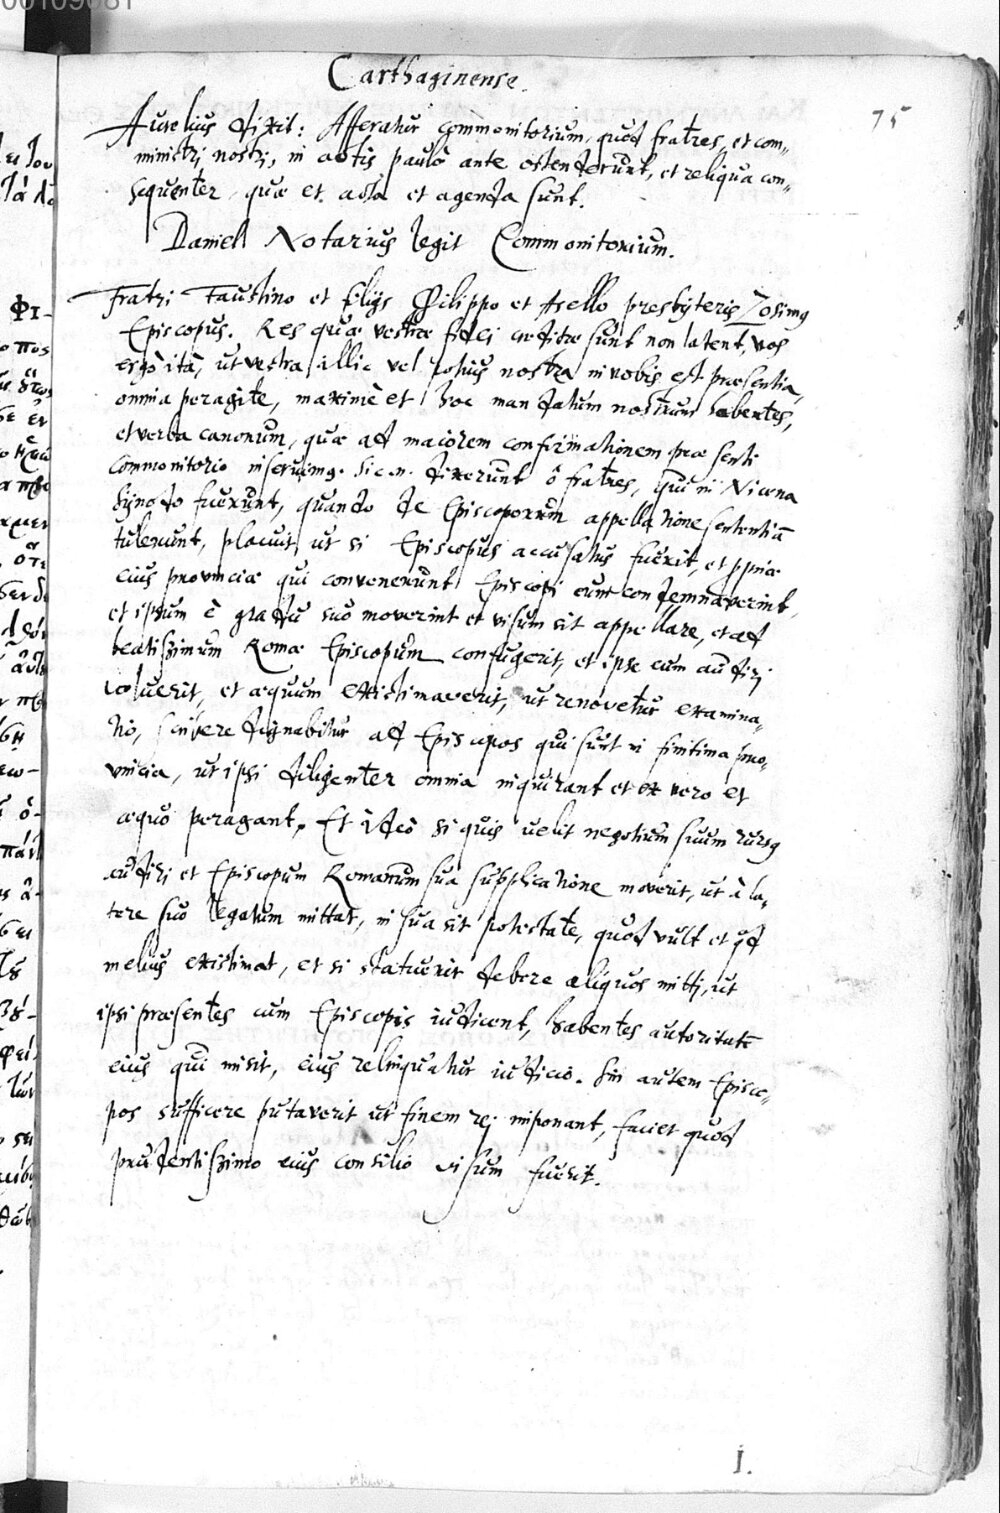 00109081
Carthaginense.
75
Aurelius dixit: Afferatur commonitorium, quod fratres, et com„
ministri nostri, in actis paulò ante ostenderunt, et reliqua con„
sequenter, quæ et acta et agenda sunt.
Daniel Notarius legit Commonitorium.
Fratri Faustino et filijs Philippo et Asello presbyteris Zosimꝯ
Episcopus. Res quæ vestræ fidei creditæ sunt non latent, vos
ergò ità, ut vestra illic vel potius nostra in vobis est præsentia,
omnia peragite, maximè et hoc mandatum nostrum habentes,
et verba canonum, quæ ad maiorem confirmationem præsenti
Commonitorio inseruimꝯ. Sic .n. dixerunt ô fratres, qui in Nicena
Synodo fuerunt, quando de Episcoporum appellatione sententiā
tulerunt, placuit, ut si Episcopus accusatus fuerit, et ppriæ
eius provinciæ qui convenerunt Episcopi eum condemnaverint,
et ipsum è gradu suo moverint et visum sit appellare, et ad
beatissimum Romæ Episcopum confugerit, et ipse eum audiri
voluerit, et æquum existimaverit, ut renovetur examina„
tio, scribere dignabitur ad Episcopos qui sunt in finitima pro„
vincia, ut ipsi diligenter omnia inquirant et ex vero et
æquo peragant. Et ideò si quis velit negotium suum rursꝯ
audiri et Episcopum Romanum sua supplicatione moverit, ut à la„
tere suo legatum mittat, in sua sit potestate, quod vult et qd
melius existimat, et si statuerit debere aliquos mitti, ut
ipsi præsentes cum Episcopis iudicent, habentes autoritatē
eius qui misit, eius relinquatur iudicio. Sin autem Episco„
pos sufficere putaverit ut finem rei imponant, faciet quod
prudentissimo eius consilio visum fuerit.
J.